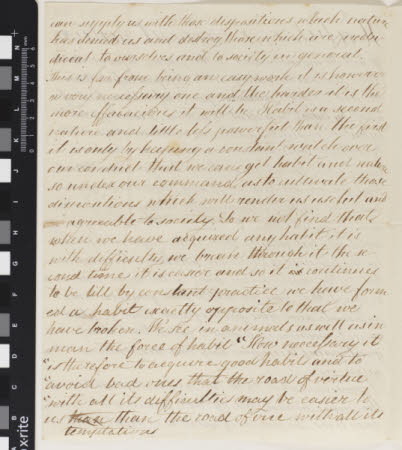 can supply us with those dispositions which nature
has denied us and destroy those which are preju
dicial to ourselves and to society in general.
This is far from being an easy work it is however
a very necessary one and the harder it is the
more efficacious it will be. Habit is a second
nature and little less powerful than the first
it is only by keeping a constant watch over
our conduct that we can get habit and nature
so under our command, as to cultivate those
dispositions which will render us useful and
agreeable to society. Do we not find that
when we have acquired any habit it is
with difficulty, we break through it the se
cond time it is easier and so it is continues
to be till by constant practice we have form
ed a habit exactly opposite to that we
have broken. We see in animals as well as in
man the force of habit "How necessary it
"is therefore to acquire good habits and to
"avoid bad ones that the road of virtue
"with all its difficulties may be easier to
us than than the road of vice with all its
temptations
x-rite